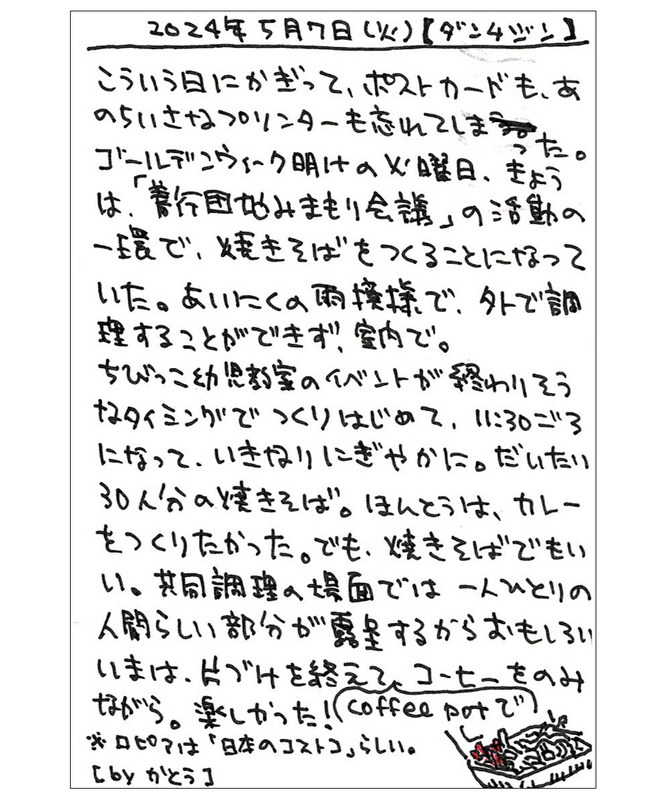 2024年5月7日(火)【ダン4ジン】
こういう日にかぎって、ポストカードも、あ
のちいさなプリンターも忘れてしま
った。
ゴールデンウィーク明けの火曜日、きょう
は、「善行団地みまもり会議」の活動の
一環で、焼きそばをつくることになって
いた。あいにくの雨模様で、外で調
理することができず、室内で。
ちびっこ幼児教室のイベントが終わりそう
なタイミングでつくりはじめて、11:30ごろ
になって、いきなりにぎやかに。だいたい
30人分の焼きそば。ほんとうは、カレー
をつくりたかった。でも、焼きそばでもい
い。共同調理の場面では一人ひとりの
人間らしい部分が露呈するからおもしろい
いまは、片づけを終えて、コーヒーをのみ
ながら。楽しかった!(coffee potで)
※ロピアは「日本のコストコ」らしい。
[by かとう]